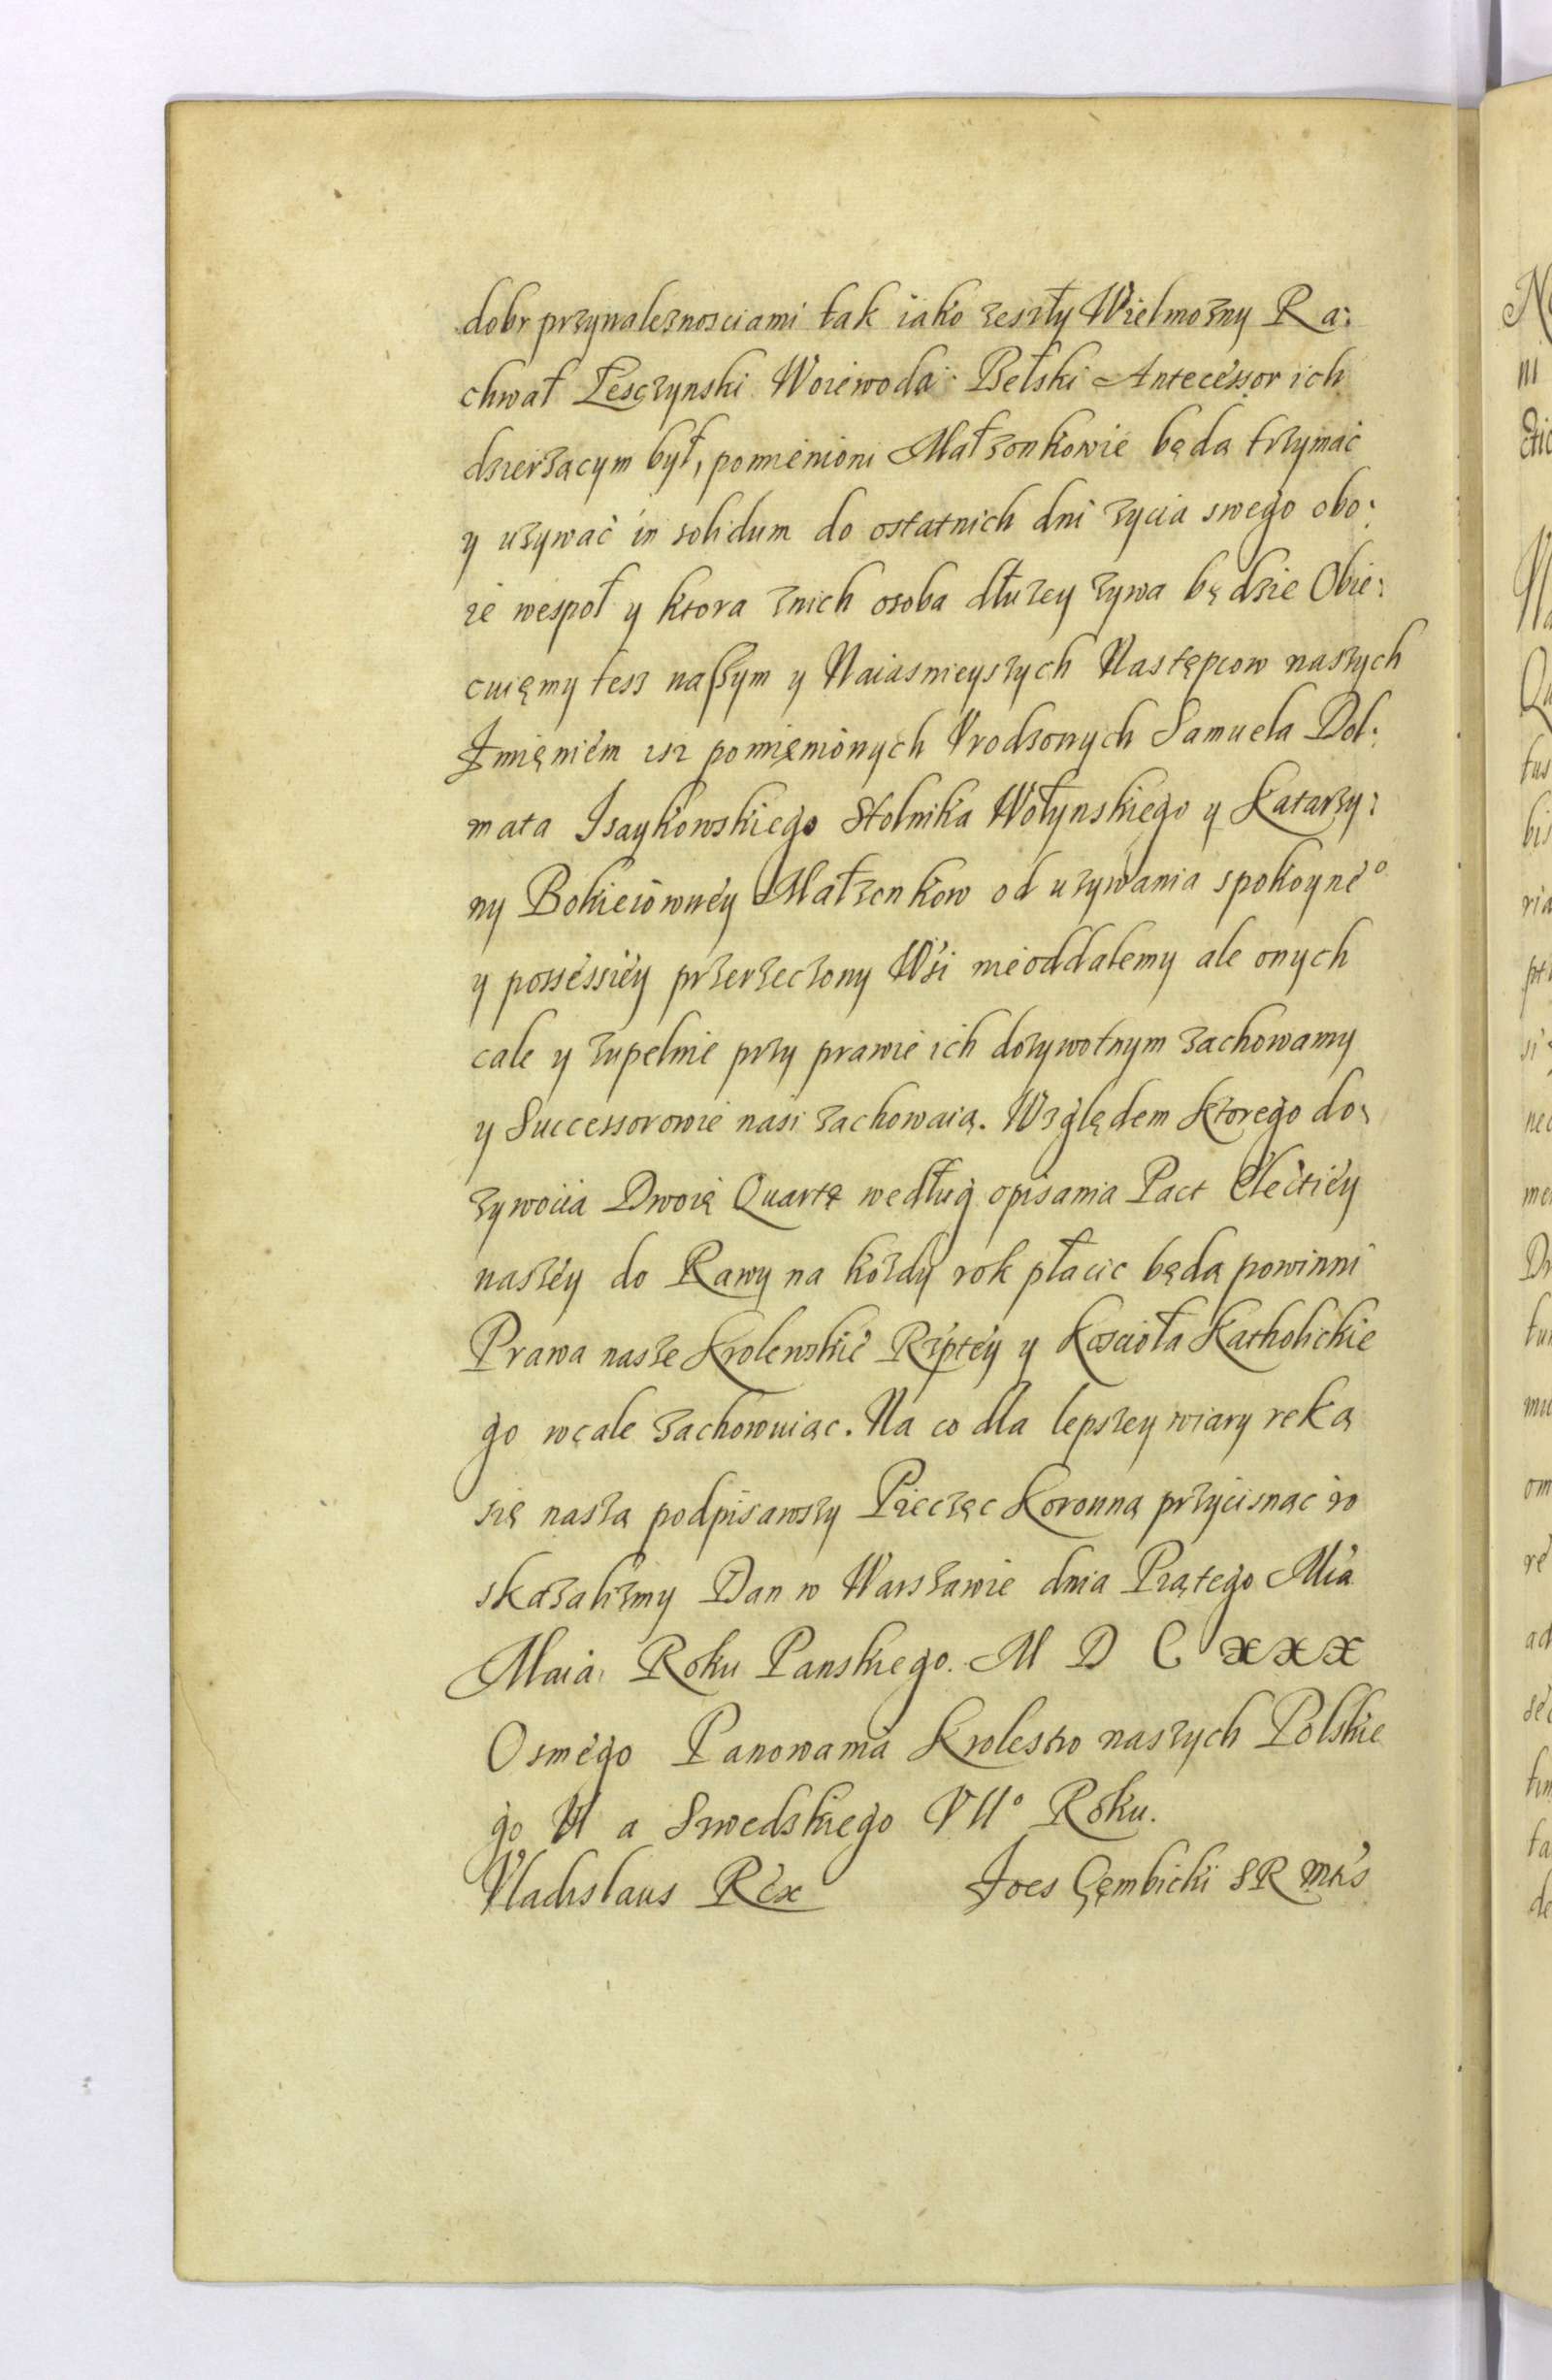 dobr przynaleznosciami tak iako zeszły Wielmozny Ra:
chwał Lesczynski Woiewoda Bełski Antecessor ich
dzierżacym był, pomienioni Małzonkowie będą trzymać
y używać in solidum do ostatnich dni zycia swego obo:
ie wespoł y ktora znich osoba dłuzey zywa będzie Obie:
cuięmy tesz naszym y Naiasnieyszych Następcow naszych
Imięniem isz pomięnionych Vrodzonych Samuela Dol:
mata Isaykowskiego Stolnika Wołynskiego y Katarzy:
ny Bokieiowney Małzonkow od uzywania spokoyne°
y possessiey przerzeczony Wsi nieoddalemy ale onych
cale y zupelnie przy prawie ich dozywotnym zachowamy
y Successorowie nasi zachowaią. Względem ktorego do:
zywocia Dwoię Quartę według opisania Pact Electiey
naszey do Rawy na kożdy rok płacic będą powinni
Prawa nasze Krolewskie Rzptey y Kościoła Katholickie
go wcale zachowuiąc. Na co dla lepszey wiary reką
się naszą podpisawszy Pieczęc Koronną przycisnąc ro
skazalismy Dan w Warszawie dnia Piątego Mia
Maia Roku Panskiego. M D C XXX
Osmego Panowania Krolestw naszych Polskie
go VI a Swedskiego VII° Roku.
Vladislaus Rex Joes Gęmbicki SR Mtis